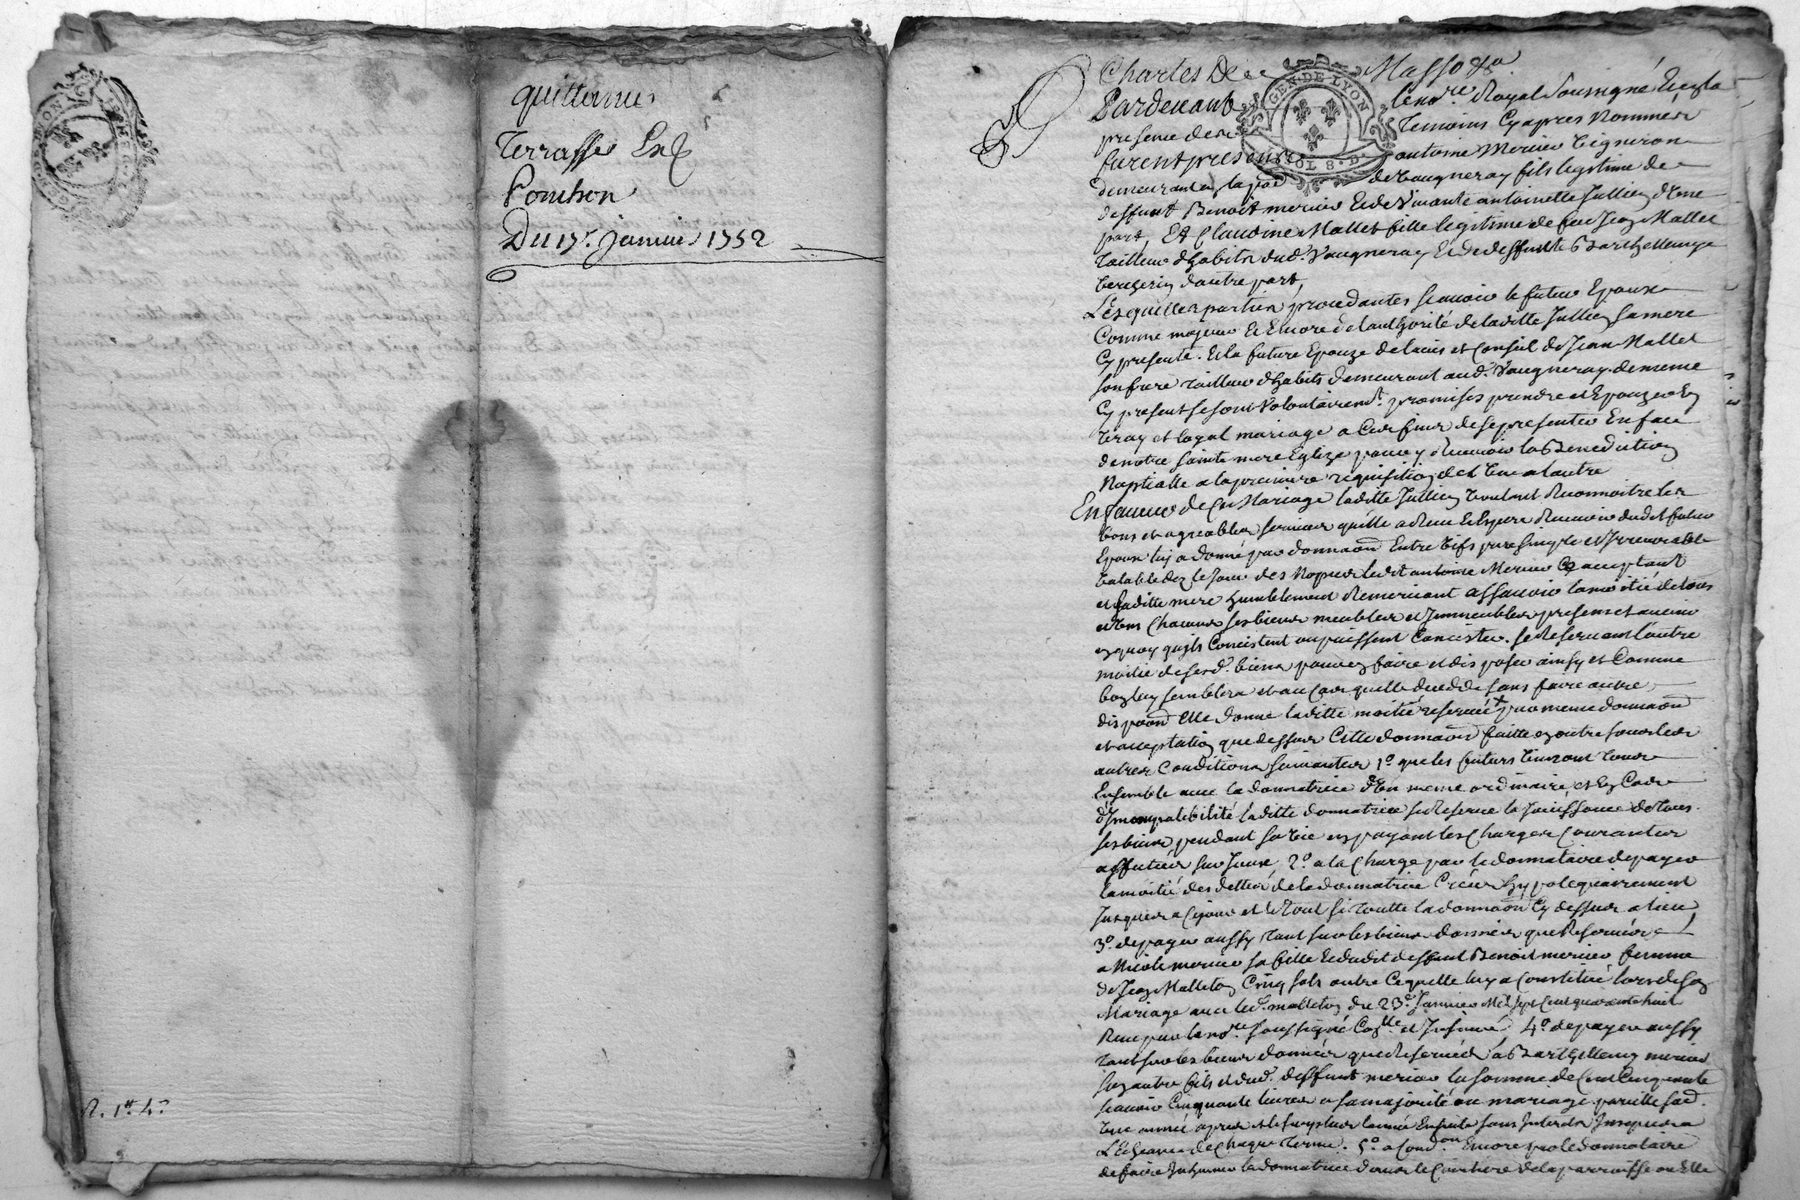 quittance
Terrasse
Ponchon
Du 17e. janvier 1752
R. 1tt 4s
GEN. DE LYON
2 SOLS 8 D.
Charles De Masso &a
Pardevant le no.re Royal soussigné Et en la
presence des temoins Cy apres Nommés
furent presents antoine Mercier Vigneron
demeurant en la par de Vaugneray fils legitime de
deffunt Benoit mercier Et de Vivante antoinette Jullien d'une
part, Et Claudine Mallet fille legitime de feu Jean Mallet
tailleur d'habits dud. Vaugneray Et de deffunte Barthellemye
d'autre part,
Lesquelles parties procedantes scavoir le futur Epoux
Comme majeur Et Encore de l'authorité de laditte Jullien sa mere
Cy presente. Et la future Epouze de l'avis et Conseil de Jean Mallet
son frere tailleur d'habits demeurant aud. Vaugneray de meme
Cy present se sont Volontairemt. promises prendre et Epouzer En
Vray et loyal mariage a Ces fins de se presenter En face
de notre sainte mere Eglize pour y Recevoir la Benediction
Nuptialle a la premiere requisition de l'Une a l'autre
En faveur de Ce Mariage laditte Jullien Voulant Reconnoitre les
bons et agreables services qu'elle a Receu Et Espere Recevoir dudit futur
Epoux luy a donné par donnaon Entre Vifs pure simple et Irrevocable
Valable dez le jour des Nopces ledit antoine Mercier acceptant
et saditte mere humblement Remerciant assavoir la moitié de tous
et Uns Chacuns ses biens meubles et Immeubles presens et avenir
en quoy qu'ils Consistent ou puissent Consister. se Reservant l'autre
moitié de sesd. biens pour en faire et disposer ainsy et Comme
bon luy semblera et au Cas qu'elle decedde sans faire autre
dispoon Elle donne laditte moitié reservée par meme donnaon
et acceptation que dessus Cette donnaon faitte en outre sous les
autres Conditions suivantes 1º que les futurs Vivront tous
Ensemble avec la donnatrice d'Un meme ordinaire, et En Cas
d'Incompatibilité laditte donnatrice se Reserve la Jouissance de tous
ses biens pendant sa vie en payant les Charges Courantes
affectées sur Iceux 2º a la Charge par le donnataire de payer
la moitié des dettes de la donnatrice Créées hypotequairement
Jusques a Ce jour et le tout si toutte la donnaon Cy dessus a lieu
3º de payer aussy tant sur les biens donnés que Reservés
a Nicole mercier sa fille Et dudit deffunt Benoit mercier femme
de Jean Malleton Cinq sols outre Ce quelle luy a Constitué lors de son
Mariage avec led. malleton du 23e. Janvier Mil sept Cent quarante huit
Receu par le nore. soussigné Conllé et Insinué 4º de payer aussy
tant sur les biens donnés que Reservés a Barthellemy mercier
son autre fils et dud. deffunt mercier la somme de Cent Cinquante
scavoir Cinquante livres a sa majorité ou mariage pareille
Une année apres et le surplus l'année Ensuite sans Interets Jusques a
L'Echeance de Chaque terme. 5º a Condon Encore par le donnataire
de faire Inhumer la donnatrice dans le Cimetiere de la parroisse ou Elle